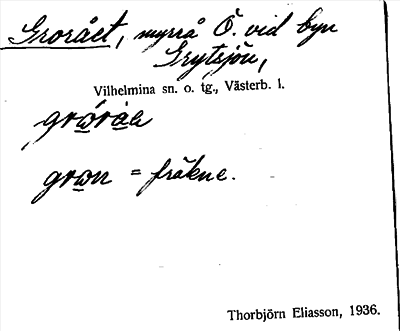 Grorået, myrrå Ö. vid byn
Grytsjön,
Vilhelmina sn. o. tg., Västerb. l.
gron = fräkne.
Thorbjörn Eliasson, 1936.